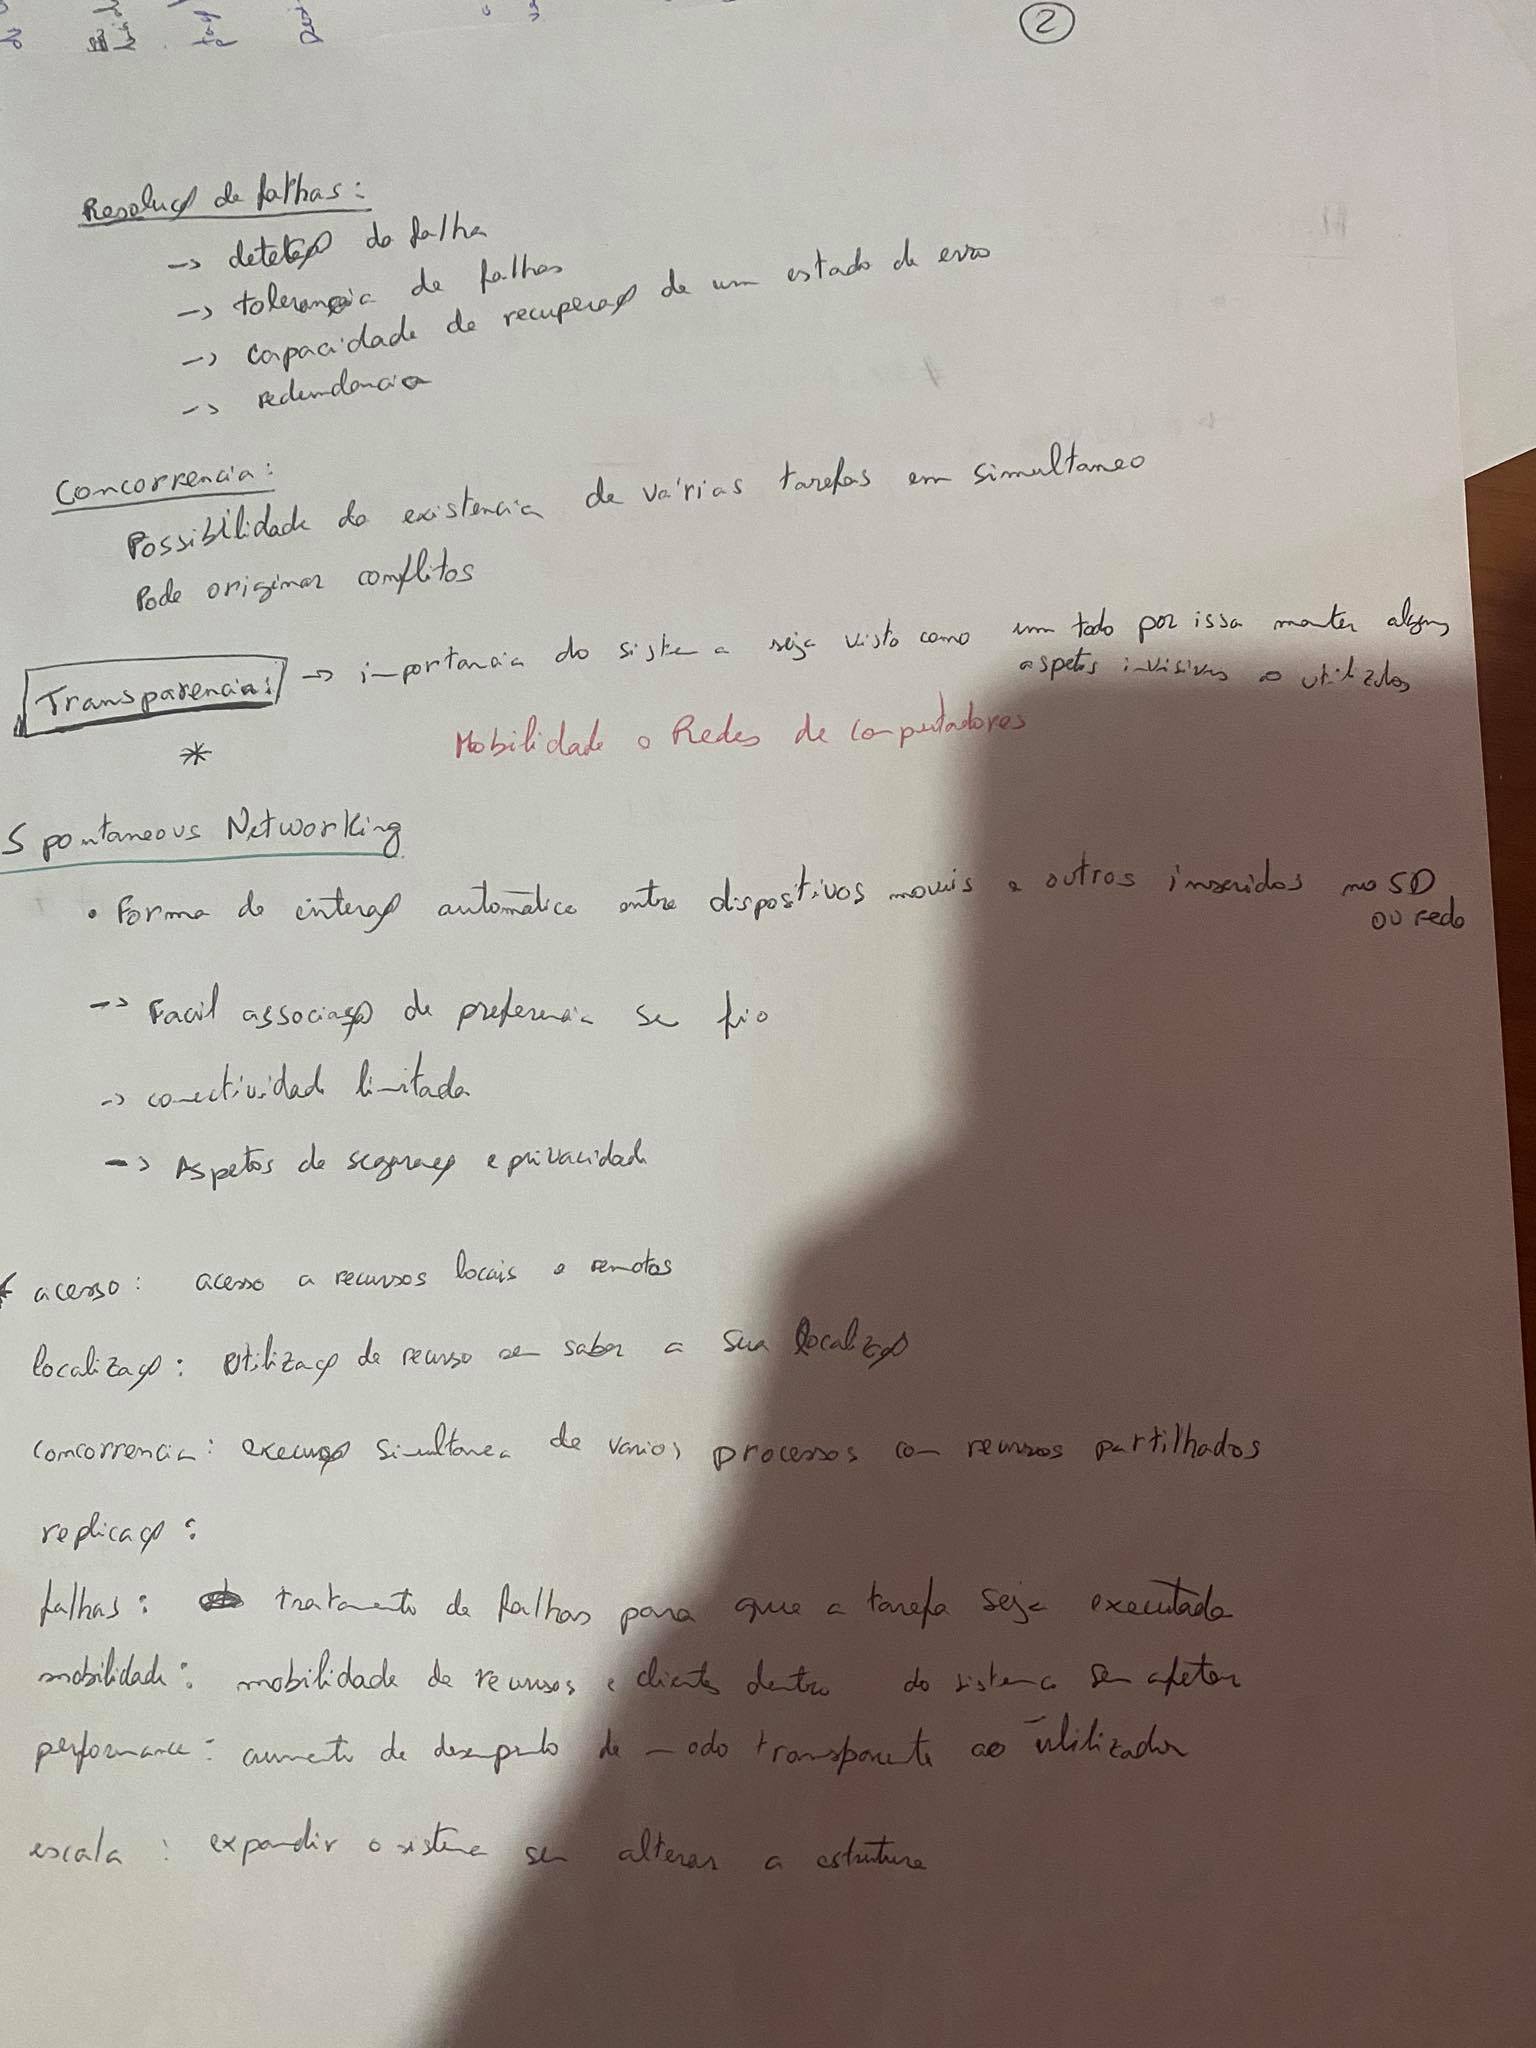 2
Resoluçã de falhas:
-> deteçã da falha
-> tolerancia de falhas
-> capacidade de recuperaçã de um estado de erro
-> redundancia
Concorrencia:
Possibilidade da existencia de várias tarefas em simultaneo
Pode originar conflitos
Transparencia: -> importancia do sistema seja visto como um todo por issa manter alguns
aspetos invisives ao utilizador
*
Mobilidade e Redes de computadores
Spontaneous Networking
• Forma de interaçã automática entre dispositivos moveis e outros inseridos no SD
ou rede
-> Facil associaçã de preferencia sem fio
-> conectividade limitada
-> Aspetos de segurançã e privacidade
* acesso: acesso a recursos locais e remotos
localizaçã: utilizaçã de recurso sem saber a sua localizaçã
concorrencia: execuçã simultanea de varios processos com recursos partilhados
replicaçã:
falhas: tratamento de falhas para que a tarefa seja executada
mobilidade: mobilidade de recursos e clientes dentro do sistema sem afetar
performance: aumento de desempenho de modo transparente ao utilizador
escala: expandir o sistema sem alterar a estrutura